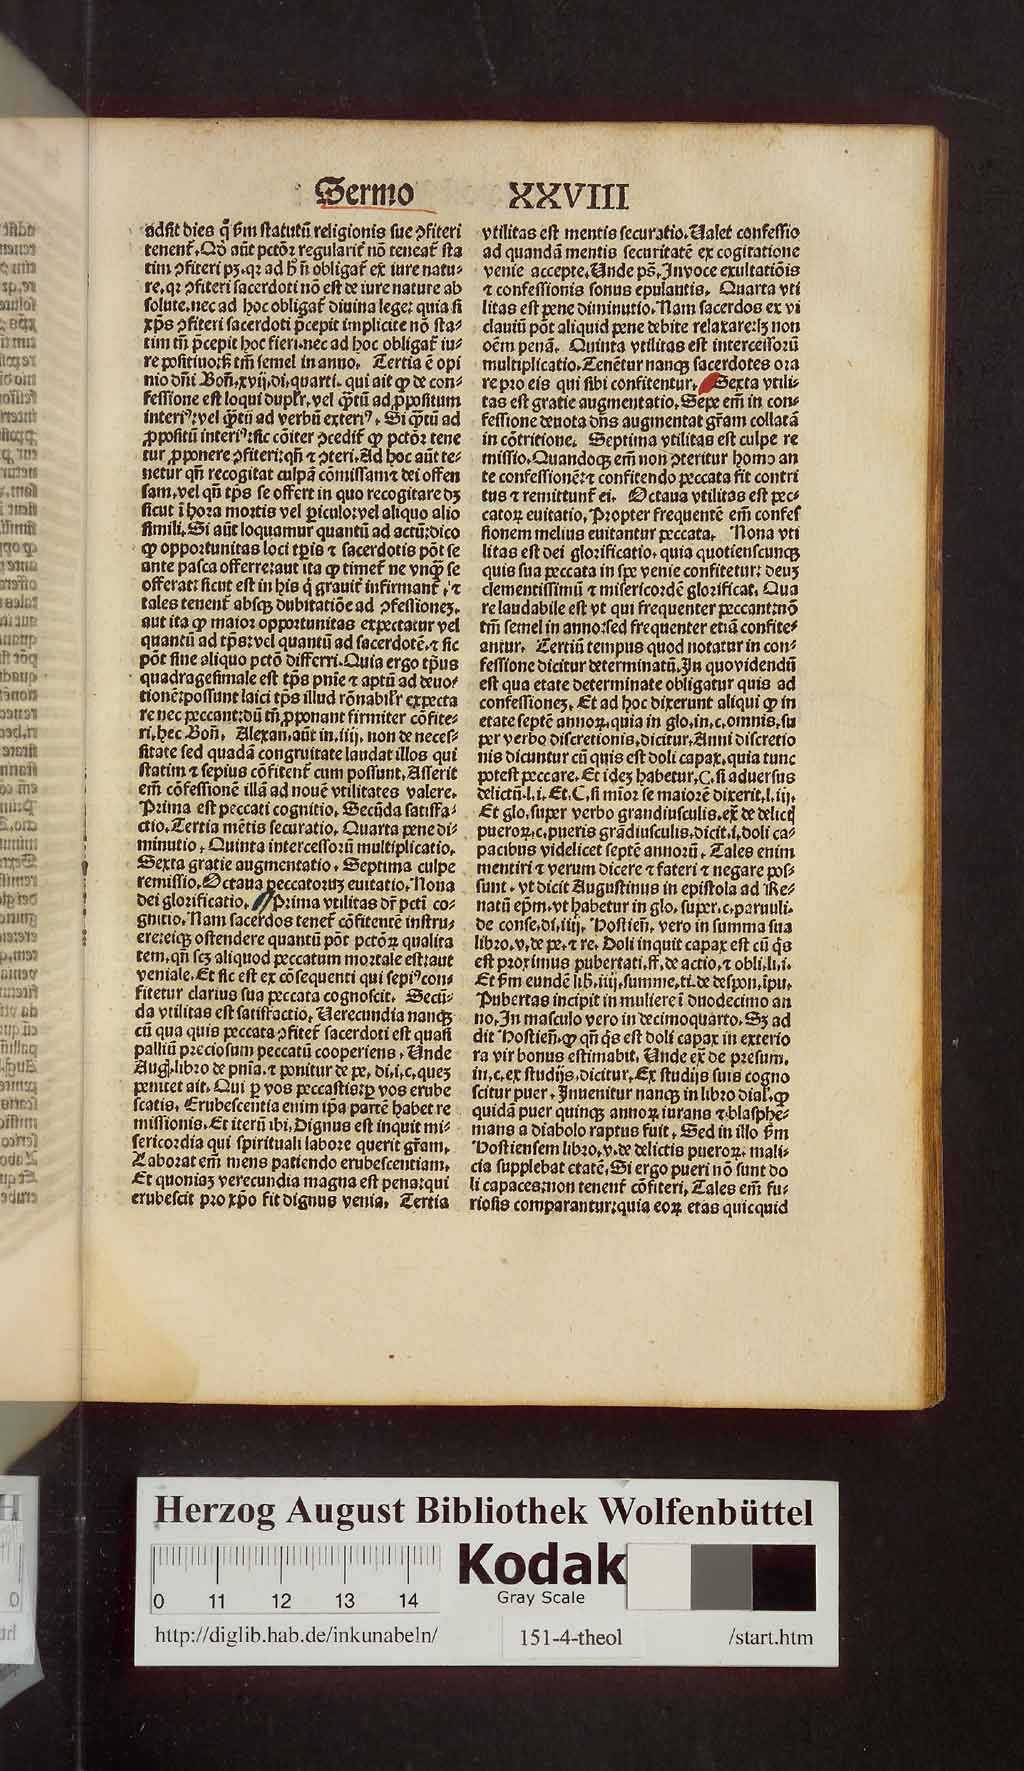 Sermo XXVIII
adsit dies q̃ ẜm statutū religionis sue ꝯfiteri
tenent᷑. Qđ aūt pctōꝝ regularit᷑ nō teneat᷑ sta
tim ꝯfiteri pꝫ. qꝛ ad h̄ n̄ obligat᷑ ex iure natu⸗
re. qꝛ ꝯfiteri sacerdoti nō est de iure nature ab
solute. nec ad hoc obligat᷑ diuina lege: quia si
xp̄s ꝯfiteri sacerdoti p̄cepit implicite nō sta⸗
tim tn̄ p̄cepit hoc fieri. nec ad hoc obligat᷑ iu⸗
re positiuo: ꝫ tm̄ semel in anno. Tertia ē opi
nio dn̄i Bon̄. xvij. di. quarti. qui ait ꝙ de con⸗
fessione est loqui dupl̕r. vel q̄tū ad ꝓpositum
interiꝰ: vel q̄tū ad verbū exteriꝰ. Si q̄tū ad
ꝓpositū interiꝰ: sic cōiter ꝯcedit᷑ ꝙ pctōꝛ tene
tur ꝓponere ꝯfiteri: qn̄ ⁊ ꝯteri. Ad hoc aūt te⸗
netur qn̄ recogitat culpā cōmissam ⁊ dei offen
sam. vel qn̄ tp̄s se offert in quo recogitare dꝫ
sicut ī hora mortis vel ꝑiculo: vel aliquo alio
simili. Si aūt loquamur quantū ad actū: dico
ꝙ opportunitas loci tꝑis ⁊ sacerdotis pōt se
ante pasca offerre: aut ita ꝙ timet᷑ ne vnꝙ̄ se
offerat: sicut est in his q̄ grauit᷑ infirmant᷑. ⁊
tales tenent᷑ absqꝫ dubitatiōe ad ꝯfessionez.
aut ita ꝙ maior opportunitas expectatur vel
quantū ad tp̄s: vel quantū ad sacerdotē. ⁊ sic
pōt sine aliquo pctō differri. Quia ergo tp̄us
quadragesimale est tp̄s pn̄ie ⁊ aptū ad deuo⸗
tionē: possunt laici tp̄s illud rōnabil̕r expecta
re nec peccant: dū tn̄ ꝓponant firmiter cōfite⸗
ri. hec Bon̄. Alexan. aūt in. iiij. non de neces⸗
sitate sed quadā congruitate laudat illos qui
statim ⁊ sepius cōfitent᷑ cum possunt. Asserit
em̄ cōfessionē illā ad nouē vtilitates valere.
Prima est peccati cognitio. Secūda satisfa⸗
ctio. Tertia mētis securatio. Quarta pene di⸗
minutio. Quinta intercessorū multiplicatio.
Sexta gratie augmentatio. Septima culpe
remissio. Octaua peccatoruz euitatio. Nona
dei glorificatio. Prima vtilitas dr̄ pcti co⸗
gnitio. Nam sacerdos tenet᷑ cōfitentē instru⸗
ere: eiqꝫ ostendere quantū pōt pctōꝝ qualita
tem. qn̄ scꝫ aliquod peccatum mortale est: aut
veniale. Et sic est ex cōsequenti qui sepiꝰ con⸗
fitetur clarius sua peccata cognoscit. Secū⸗
da vtilitas est satisfactio. Verecundia nanqꝫ
cū qua quis peccata ꝯfitet᷑ sacerdoti est quasi
palliū preciosum peccatū cooperiens. Unde
Aug̕. libro de pn̄ia. ⁊ ponitur de pe. di. i. c. quez
penitet ait. Qui ꝑ vos peccastis: ꝑ vos erube
scatis. Erubescentia enim ip̄a partē habet re
missionis. Et iterū ibi. Dignus est inquit mi⸗
sericordia qui spirituali labore querit gr̄am.
Laborat em̄ mens patiendo erubescentiam.
Et quoniaz verecundia magna est pena: qui
erubescit pro xp̄o fit dignus venia. Tertia
vtilitas est mentis securatio. Ualet confessio
ad quandā mentis securitatē ex cogitatione
venie accepte. Unde pꝰ. In voce exultatiōis
⁊ confessionis sonus epulantis. Quarta vti
litas est pene diminutio. Nam sacerdos ex vi
clauiū pōt aliquid pene debite relaxare: lꝫ non
oēm penā. Quinta vtilitas est intercessorū
multiplicatio. Tenētur nanqꝫ sacerdotes ora
re pro eis qui sibi confitentur. Sexta vtili⸗
tas est gratie augmentatio. Sepe em̄ in con⸗
fessione deuota dn̄s augmentat gr̄am collatā
in cōtritione. Septima vtilitas est culpe re
missio. Quandoqꝫ em̄ non ꝯteritur homo an
te confessionē: ⁊ confitendo peccata fit contri
tus ⁊ remittunt᷑ ei. Octaua vtilitas est pec⸗
catoꝝ euitatio. Propter frequentē em̄ confes
sionem melius euitantur peccata. Nona vti
litas est dei glorificatio. quia quotienscunqꝫ
quis sua peccata in spe venie confitetur: deuz
clementissimū ⁊ misericordē glorificat. Qua
re laudabile est vt qui frequenter peccant: nō
tm̄ semel in anno: sed frequenter etiā confite⸗
antur. Tertiū tempus quod notatur in con⸗
fessione dicitur determinatū. In quo videndū
est qua etate determinate obligatur quis ad
confessionez. Et ad hoc dixerunt aliqui ꝙ in
etate septē annoꝝ. quia in glo. in. c. omnis. su
per verbo discretionis. dicitur. Anni discretio
nis dicuntur cū quis est doli capax. quia tunc
potest peccare. Et idez habetur. C. si aduersus
delictū. l. i. Et. C. si mīor se maiorē dixerit. l. iij.
Et glo. super verbo grandiusculis. ex̄ de delict̕
pueroꝝ. c. pueris grādiusculis. dicit. i. doli ca⸗
pacibus videlicet septē annorū. Tales enim
mentiri ⁊ verum dicere ⁊ fateri ⁊ negare pos⸗
sunt. vt dicit Augustinus in epistola ad Re⸗
natū ep̄m. vt habetur in glo. super. c. paruuli.
de conse. di. iiij. Hostien̄. vero in summa sua
libro. v. de pe. ⁊ re. Doli inquit capax est cū q̇s
est proximus pubertati. ff. de actio. ⁊ obli. li. i.
Et ẜm eundē lib. iiij. summe. ti. de despon. īpu.
Pubertas incipit in muliere ī duodecimo an
no. In masculo vero in decimoquarto. Sꝫ ad
dit Hostien̄. ꝙ qn̄ q̇s est doli capax in exterio
ra vir bonus estimabit. Unde ex̄ de presum.
in. c. ex studijs. dicitur. Ex studijs suis cogno
scitur puer. Inuenitur nanqꝫ in libro dial. ꝙ
quidā puer quinqꝫ annoꝝ iurans ⁊ blasphe⸗
mans a diabolo raptus fuit. Sed in illo ẜm
Hostiensem libro. v. de delictis pueroꝝ. mali⸗
cia supplebat etatē. Si ergo pueri nō sunt do
li capaces: non tenent᷑ cōfiteri. Tales em̄ fu⸗
riosis comparantur: quia eoꝝ etas quicquid
Herzog August Bibliothek Wolfenbüttel
0 11 12 13 14
Kodak
Gray Scale
http://diglib.hab.de/inkunabeln/ 151-4-theol /start.htm